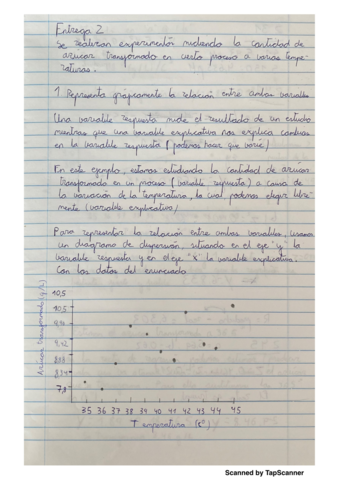 Entrega 2
Se realizan experimentos midiendo la cantidad de
azucar transformado en cierto proceso a varias tempe-
raturas.
1. Representa gráficamente la relación entre ambas variables
Una variable respuesta mide el resultado de un estudio
mientras que una variable explicativa nos explica cambios
en la variable respuesta (podemos hacer que varie)
En este ejemplo, estamos estudiando la cantidad de azucar
transformada en un proceso (variable respuesta) a causa de
la variación de la temperatura, la cual podemos elegir libre-
mente (variable explicativa)
Para representar la relación entre ambas variables, usamos
un diagrama de dispersión, situando en el eje "y" la
variable respuesta y en el eje "x" la variable explicativa.
Con los datos del enunciado
Azucar transformado (g/L)
10,5
7,8
35 36 37 38 39 40 41 42 43 44 45
Temperatura (tº)
Scanned by TapScanner